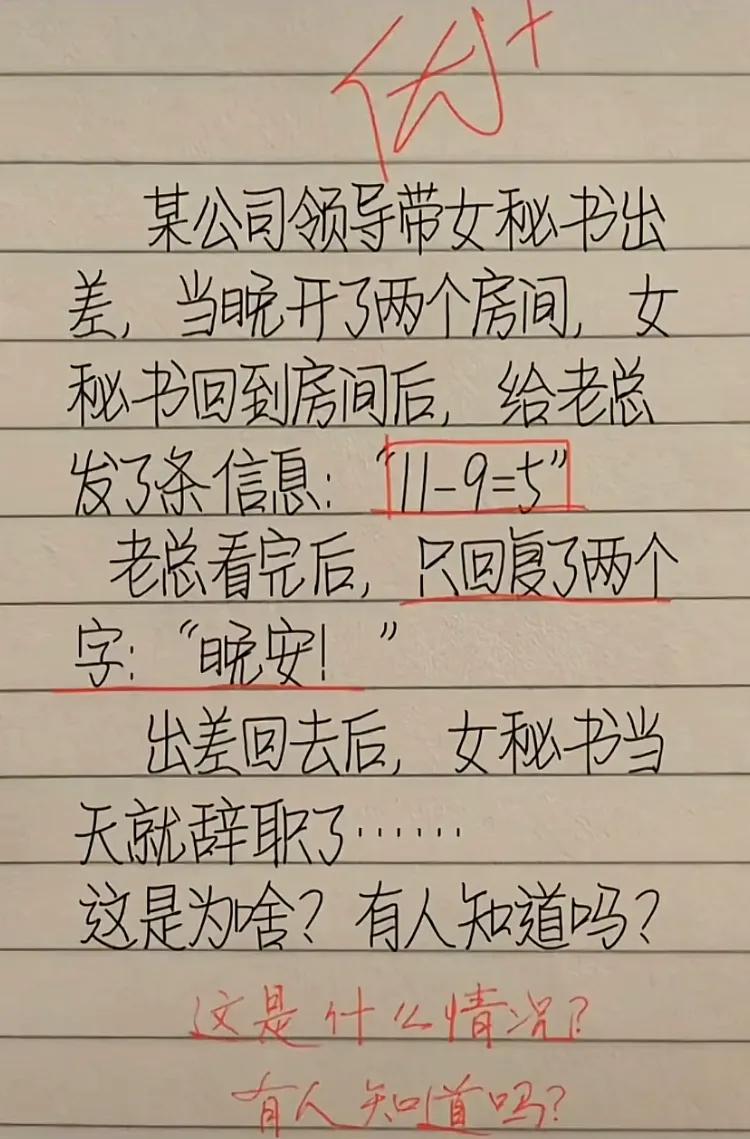 优+
某公司领导带女秘书出
差，当晚开了两个房间，女
秘书回到房间后，给老总
发了条信息：“11-9=5”
老总看完后，只回复了两个
字：“晚安！”
出差回去后，女秘书当
天就辞职了……
这是为啥？有人知道吗？
这是什么情况？
有人知道吗？